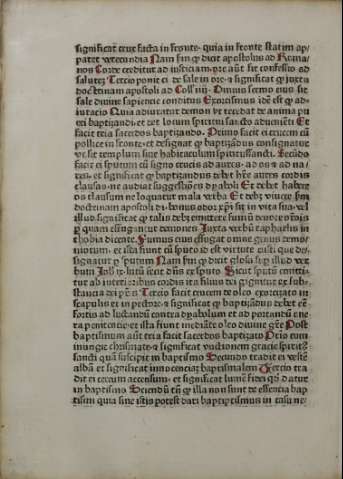 significat crux facta in fronte· quia in fronte statim ap/
patet verecundia Nam ꝓut dicit apostolus ad Roma/
nos Corde creditur ad iusticiam· ore aūt fit confessio ad
salutez Tercio ponit ei de sale in ore· ⁊ significat ꝙ iuxta
doctrinam apostoli ad Coll' iiij· Omnis sermo eius sit
sale diuine sapiencie conditus Exorcismus idē est ꝙ ad/
iuracio Quia adiuratur demon vt recedat de anima pu
eri baptizandi· et det locum spiritui sancto aduenienti Et
facit tria sacerdos baptizando· Primo facit ei crucem cū
pollice in fronte· et designat ꝙ baptizādus consignatur
vt sit templum siue habitaculum spiritussancti· Secūdo
facit ei sputum cū signo crucis ad aures· ad os ⁊ ad na/
res· et significat ꝙ baptizandus debet h̄re aures cordis
clausas· ne audiat suggestiōes dyaboli Et debet habere
os clausum ne loquatur mala verba Et debet viuere scdm
doctrinam apostoli
illud significat ꝙ talis debet emittere
ꝑ quam effugantur demones Iuxta verbū raphaelis in
thobia dicente Fumus eius effugat omne genus demo/
niorum· et ista fiunt cū sputo
signatur ꝑ sputum Nam dicit glosa sup illud ver
bum Ioh ix· lutū fecit dn̄s ex sputo Sicut sputū emitti/
tur ab interioribus cordis ita filius dei gignitur ex sub/
stancia dei pr̄is Tercio facit crucem de oleo exorcizato in
scapulis et in pectore· ⁊ significat ꝙ baptizādus debet eē
fortis ad luctandū contra dyabolum et ad portandū one
ra penitencie· et ista fiunt mediāte oleo diuine gr̄e Post
baptismum aūt tria facit sacerdos baptizato Prīo eum
inungit chrismate· ⁊ significat vnctionem gracie spirit9
sancti quā suscipit in baptismo Secundo tradit ei vestē
albā et significat innocenciaʒ baptismalem Tercio tra
dit ei cereum accensum· et significat lumē fidei qd datur
in baptismo Sciendū tn̄ ꝙ illa non sunt de essentia bap
tismi quia sine istis potest dari baptismus in casu ne/